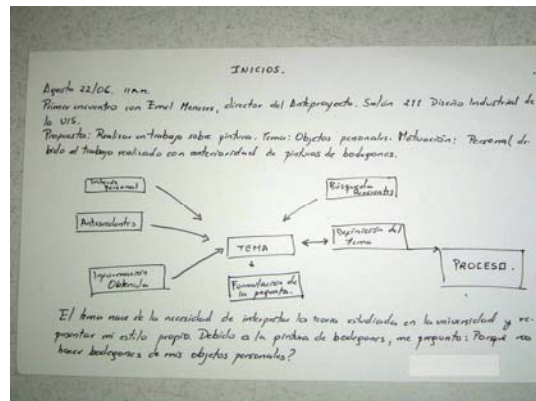 INICIOS.
Agosto 22/06. 11 A.M.
Primer encuentro con Emel Meneses, director del Anteproyecto. Salón 211 Diseño Industrial de
la UIS.
Propuesta: Realizar un trabajo sobre pintura. Tema: Objetos personales. Motivación: Personal de-
bido al trabajo realizado con anterioridad de pinturas de bodegones.
Personal
Búsqueda
Antecedentes
Definición del
Tema
TEMA
PROCESO.
Información
Obtenida
Formulación de
la pregunta.
El tema nace de la necesidad de interpretar la teoría estudiada en la universidad y re-
presentar mi estilo propio. Debido a la pintura de bodegones, me pregunto: Porqué no
hacer bodegones de mis objetos personales?